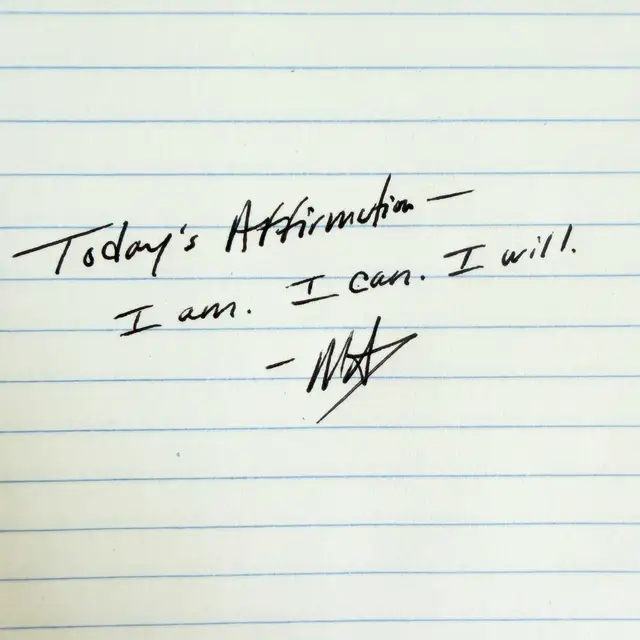 Today's Affirmation —
I am. I can. I will.
- MA